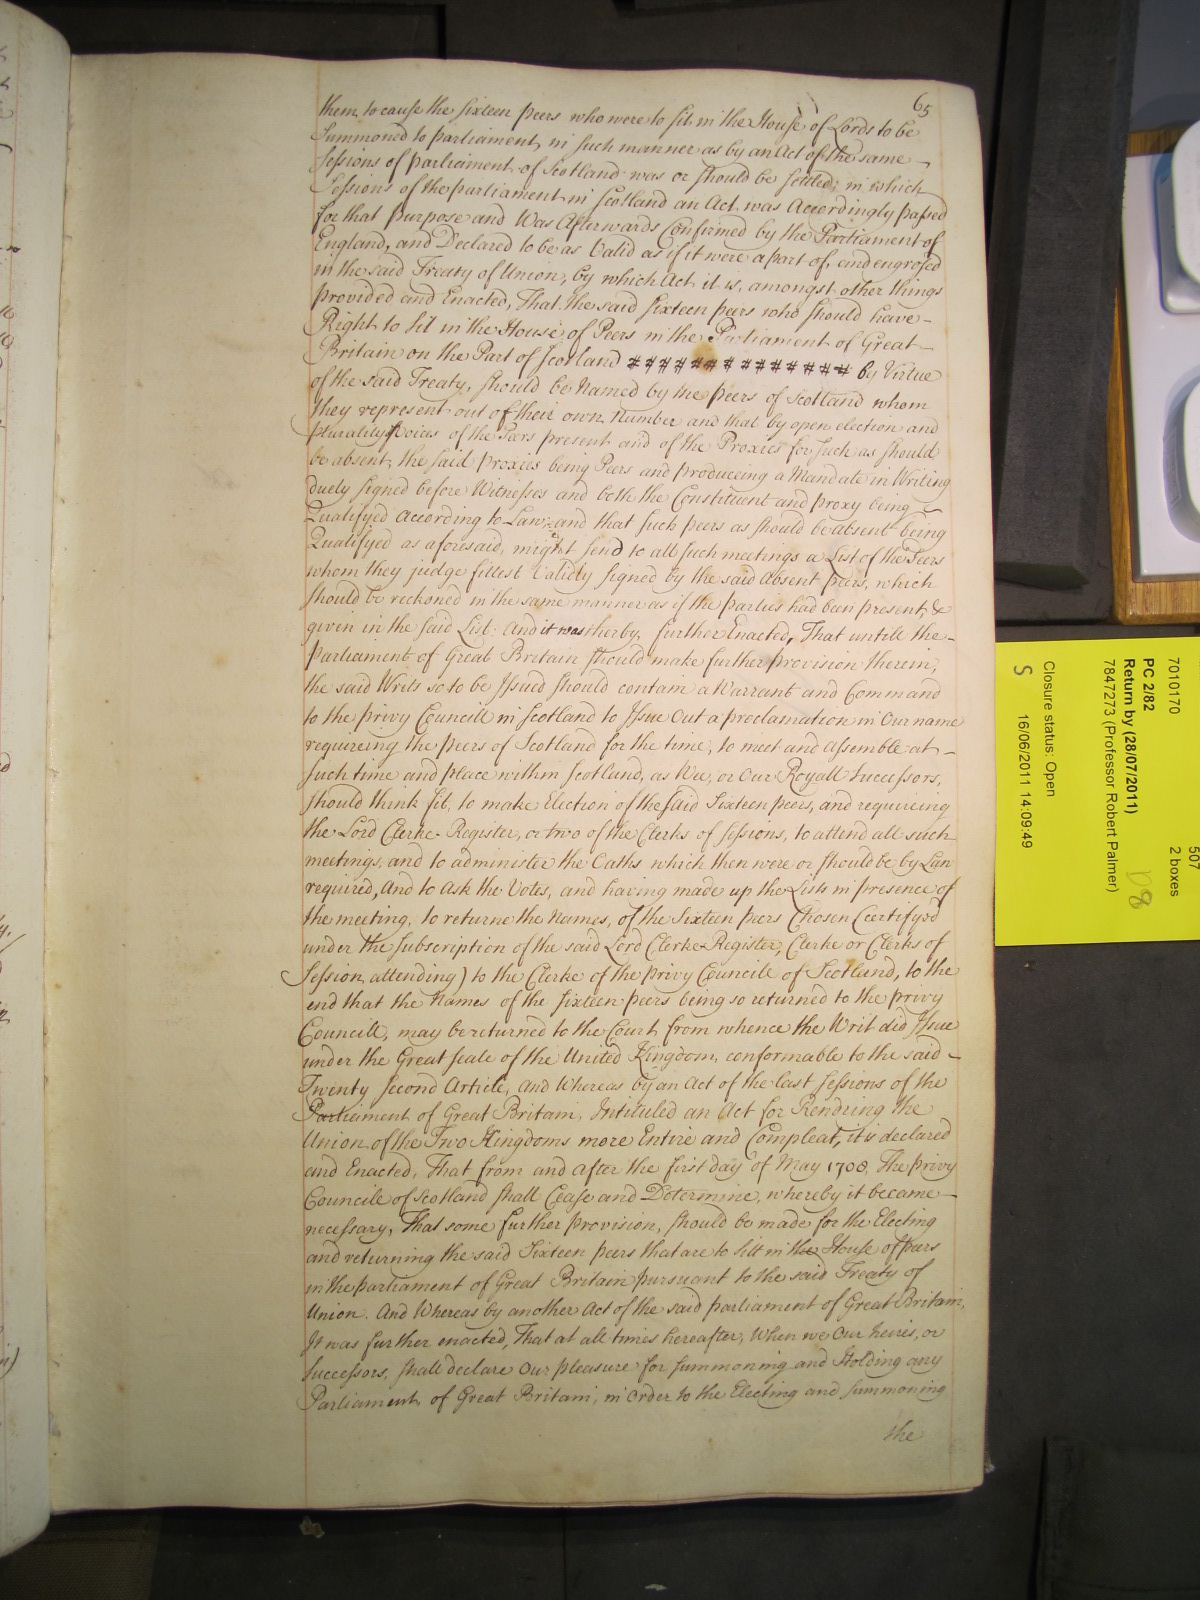 65
them, to cause the sixteen peers who were to sit in the House of Lords to be
Summoned to parliament, in such manner as by an Act of the same
Sessions of parliament of Scotland was or should be settled; in which
Sessions of the parliament in Scotland an Act was Accordingly passed
for that purpose and Was Afterwards Confirmed by the Parliament of
England, and Declared to be as Valid as if it were a part of, and engrosed
in the said Treaty of Union, by which Act it is, amongst other things
provided and Enacted, That the said sixteen peers who should have
Right to sit in the House of Peers in the Parliament of Great
Britain on the Part of Scotland ############## by Virtue
of the said Treaty, should be Named by the peers of Scotland whom
they represent out of their own Number and that by open election and
plurality of voices of the Peers present and of the Proxies for such as should
be absent, the said proxies being Peers and produceing a Mandate in Writing
duely signed before Witnesses and both the Constituent and proxy being
Qualifyed According to Law; and that such peers as should be absent being
Qualifyed as aforesaid, might send to all such meetings a List of the Peers
whom they judge fittest Validly signed by the said Absent peers, which
should be reckoned in the same manner as if the parties had been present, &
given in the said List: And it was therby further Enacted, That untill the
Parliament of Great Britain should make further provision therein,
the said Writs so to be Issued should contain a Warrant and Command
to the privy Councill in Scotland to Issue Out a proclamation in Our name
requireing the peers of Scotland for the time, to meet and Assemble at
such time and place within Scotland, as Wee, or Our Royall Successors,
should think fit, to make Election of the said Sixteen peers, and requireing
the Lord Clerke-Register, or two of the Clerks of Sessions, to attend all such
meetings, and to administer the Oaths which then were or should be by Law
required, And to ask the Votes, and having made up the Lists in presence of
the meeting, to returne the Names, of the Sixteen peers Chosen (certifyed
under the Subscription of the said Lord Clerke-Register, Clerke or Clerks of
Session attending) to the Clerke of the privy Councile of Scotland, to the
end that the Names of the sixteen peers being so returned to the privy
Councill, may be returned to the Court from whence the Writ did Issue
under the Great seale of the United Kingdom, conformable to the said
Twenty second Article, And Whereas by an Act of the last sessions of the
Parliament of Great Britain, Intituled an Act for Rendring the
Union of the Two Kingdoms more Entire and Compleat, it is declared
and Enacted, That from and after the first day of May 1708. The privy
Councile of Scotland shall Cease and Determine, whereby it became
necessary, That some further provision, should be made for the Electing
and returning the said Sixteen peers that are to sitt in the House of peers
in the parliament of Great Britain pursuant to the said Treaty of
Union. And Whereas by another Act of the said parliament of Great Britain,
It was further enacted, That at all times hereafter, When we Our heirs, or
Successors, shall declare Our pleasure for summoning and Holding any
Parliament of Great Britain, in order to the Electing and summoning
the
7010170
507
2 boxes
PC 2/82
Return by (28/07/2011)
7847273 (Professor Robert Palmer)
Closure status: Open
S
16/06/2011 14:09:49